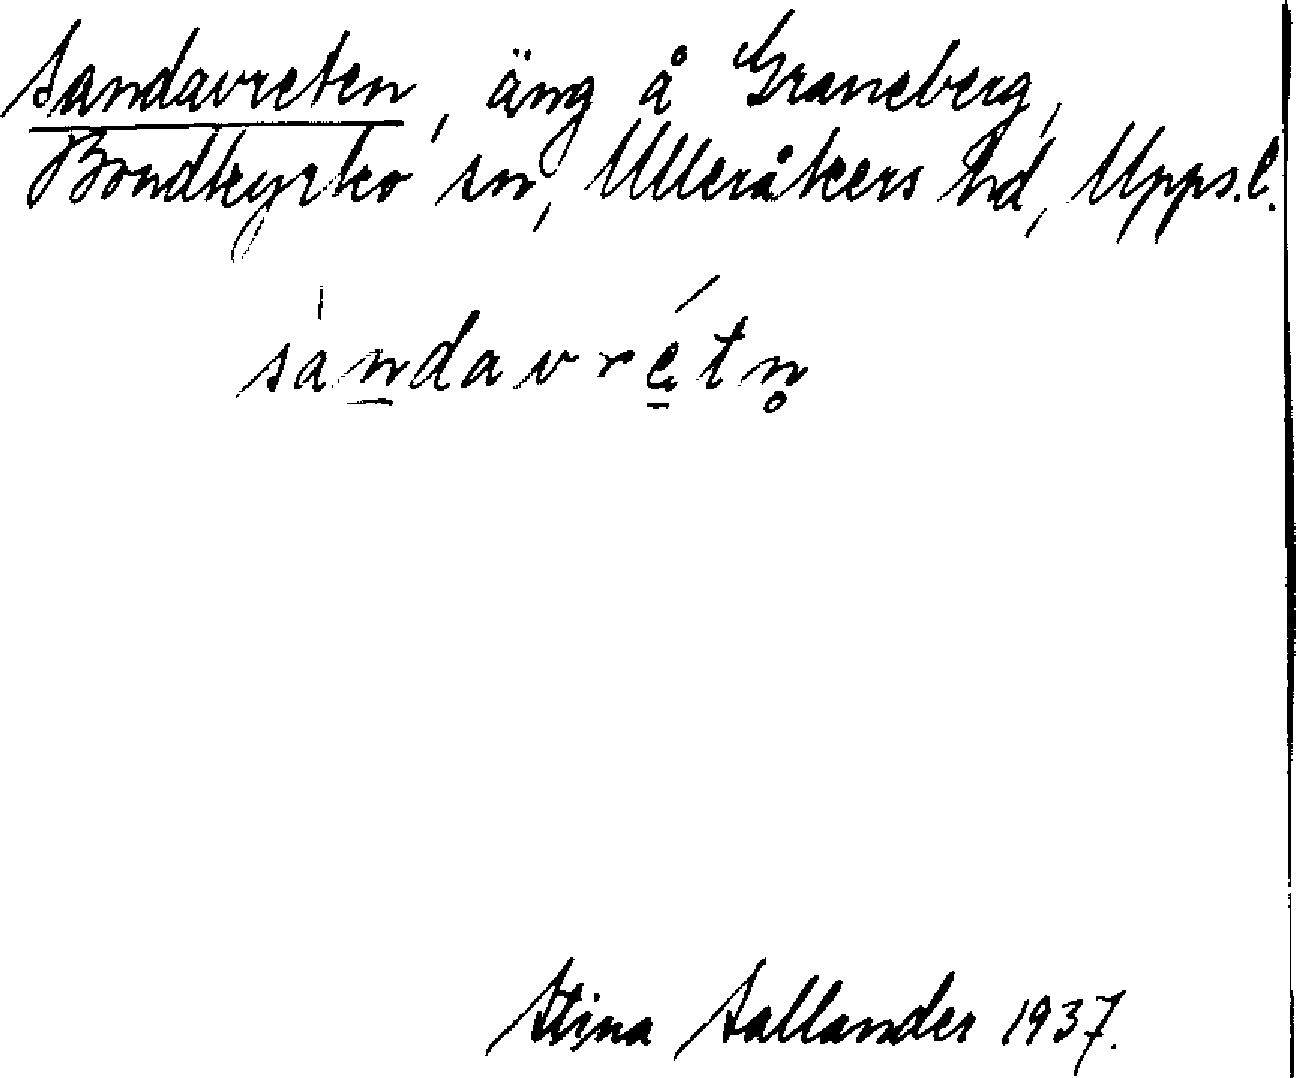 Sandavreten, äng å Graneberg,
Bondkyrko sn, Ulleråkers hd, Upps.l.
sa̍n̠davré̠tn̥
Stina Sallander 1937.